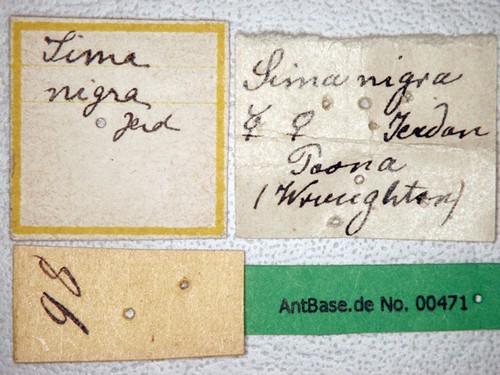 Sima
nigra
Jerd
Sima nigra
☿ ♀ Jerdon
Poona
(Wroughton)
98
AntBase.de No. 00471